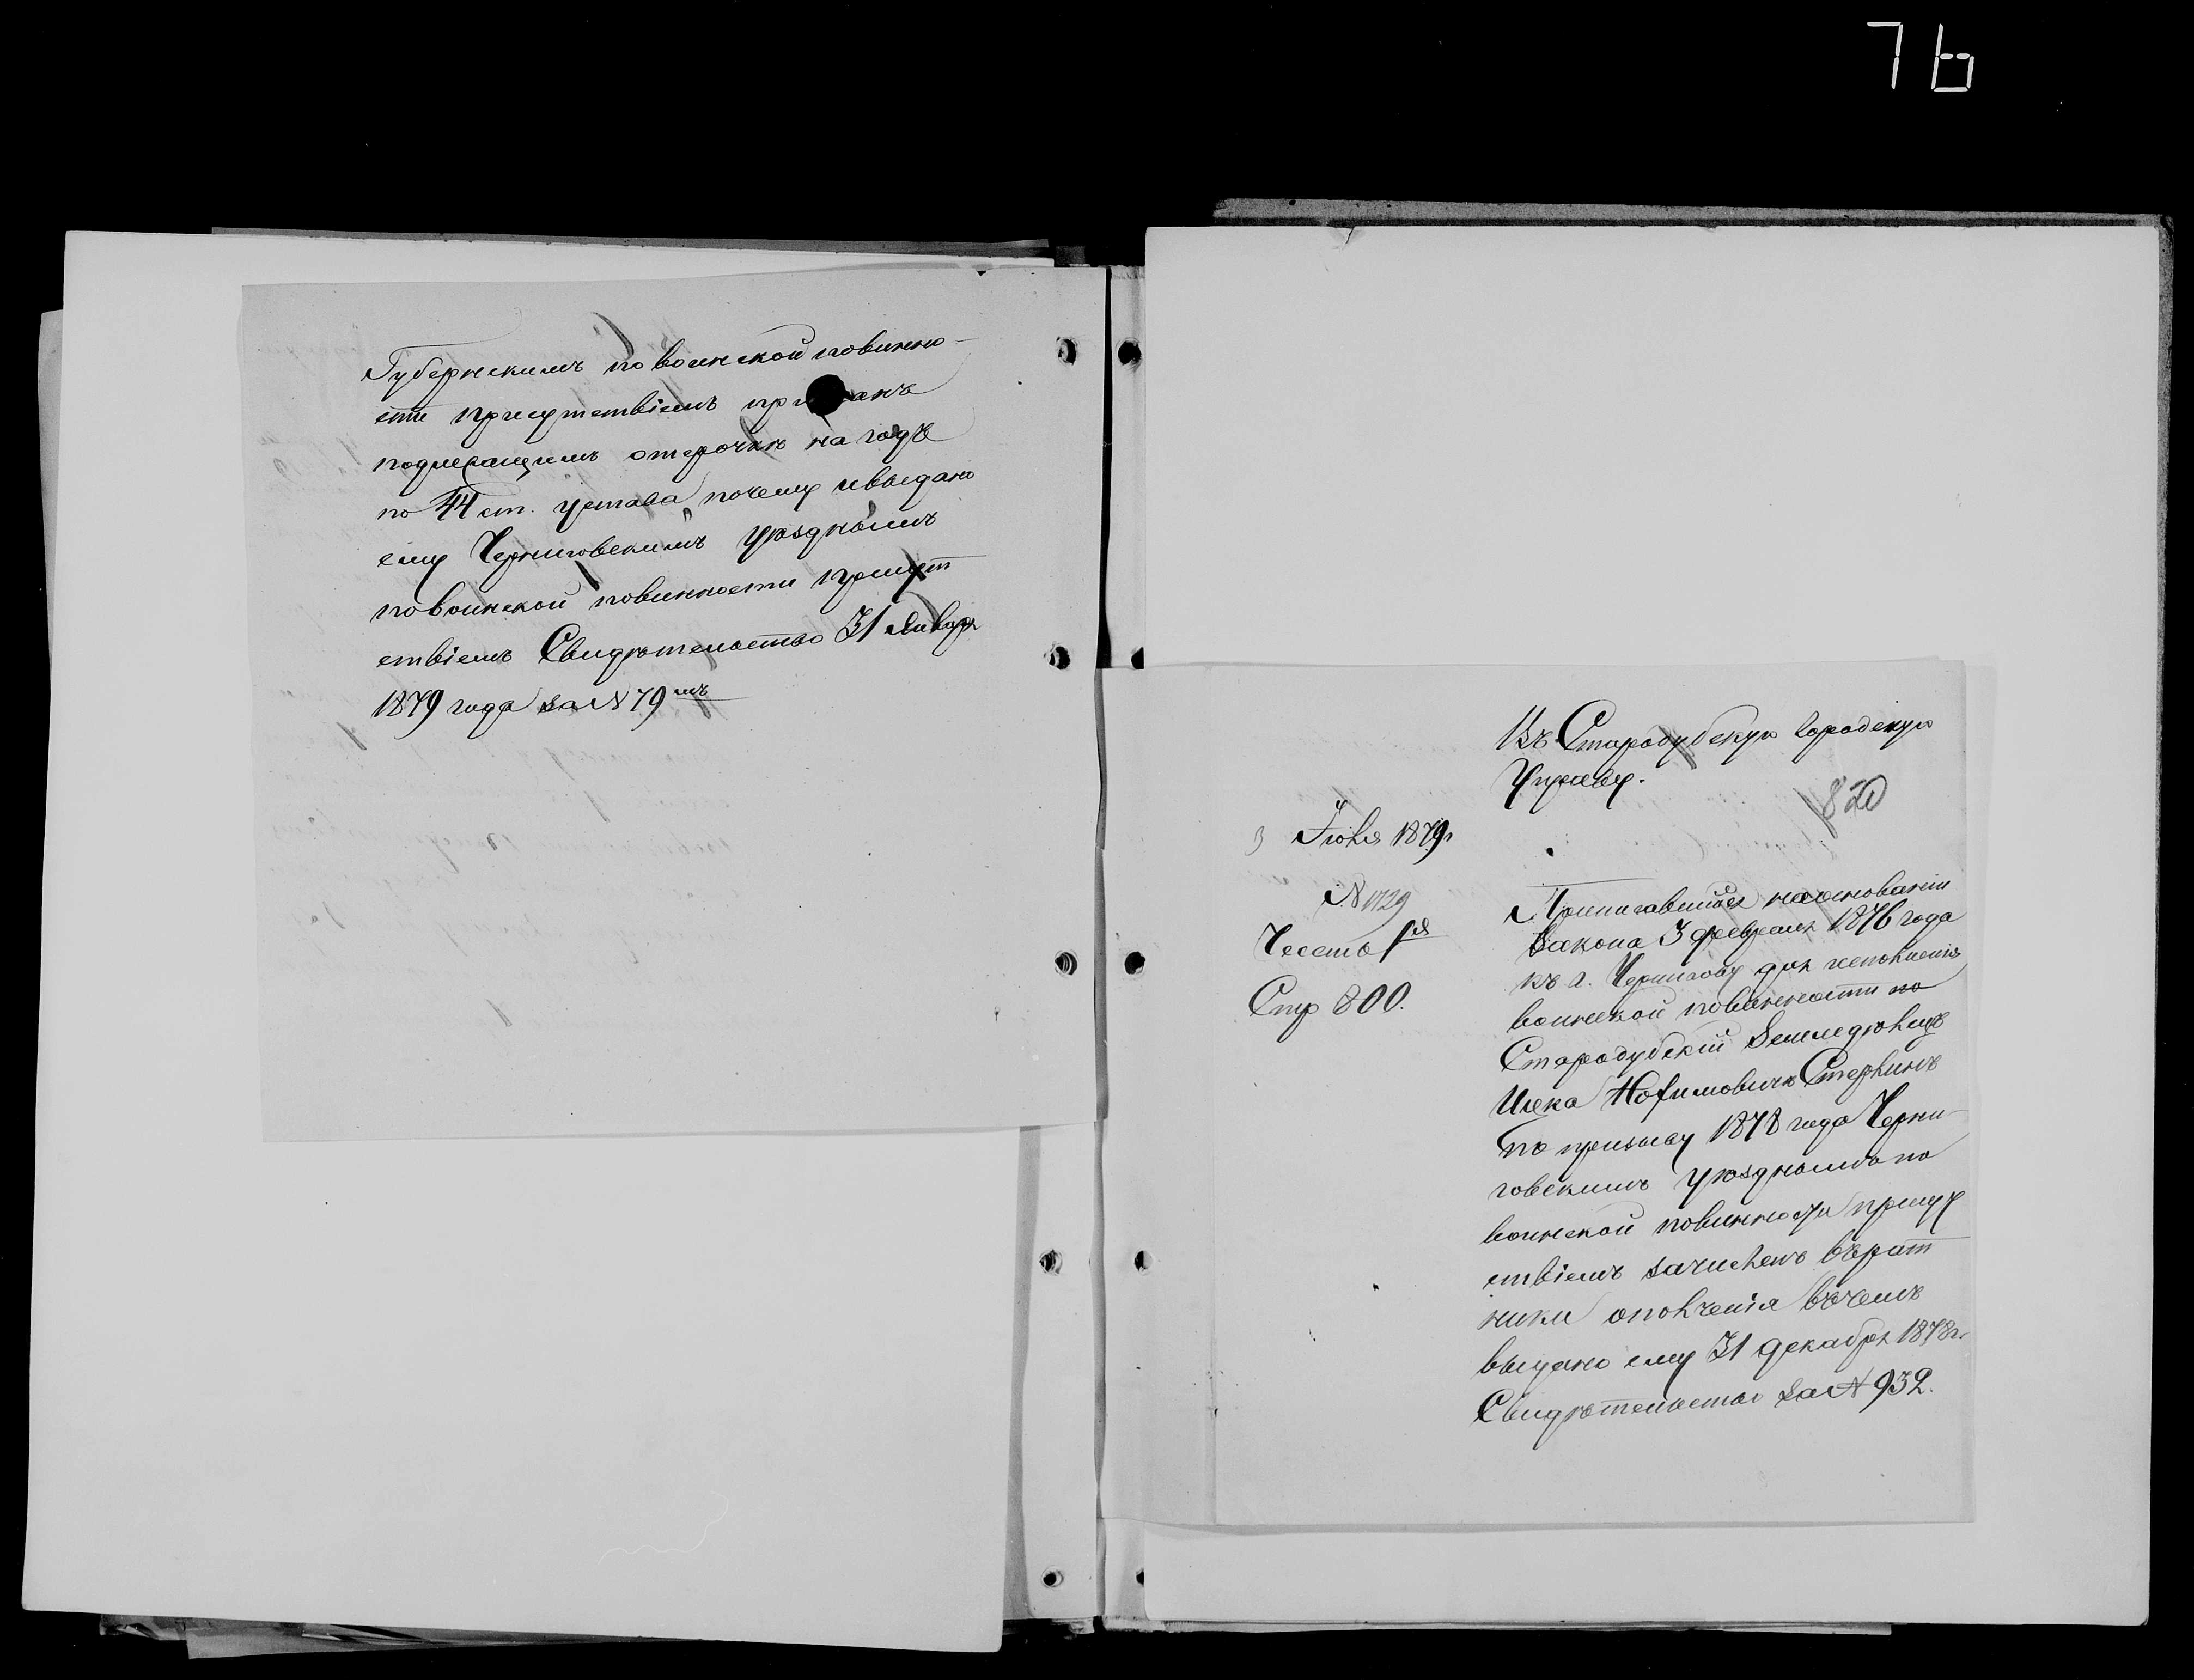 76
Губернскимъ по воинской повинно-
сти присутствіемъ признанъ
подлежащимъ отсрочкѣ на годъ
по 44 ст. устава почему и выдано
ему Черниговскимъ Уѣзднымъ
по воинской повинности присут
ствіемъ Свидѣтельство 31 Января
1879 года за N 79мъ
Въ Стародубскую Городскую
Управу.
820
3 Іюня 1879г
N 1729
Часть 1я
Стр 800.
Приписавшійся на основаніи
Закона 3 февраля 1876 года
къ г. Чернигову для исполненія
воинской повинности по
Стародубскій Земледѣлецъ
Ицка Стеркинъ
по призыву 1878 года Черни-
говскимъ Уѣзднымъ по
воинской повинности присут
ствіемъ зачисленъ въ рат
ники ополченія въ чемъ
выдано ему 31 декабря 1878г.
Свидѣтельство за N 932.